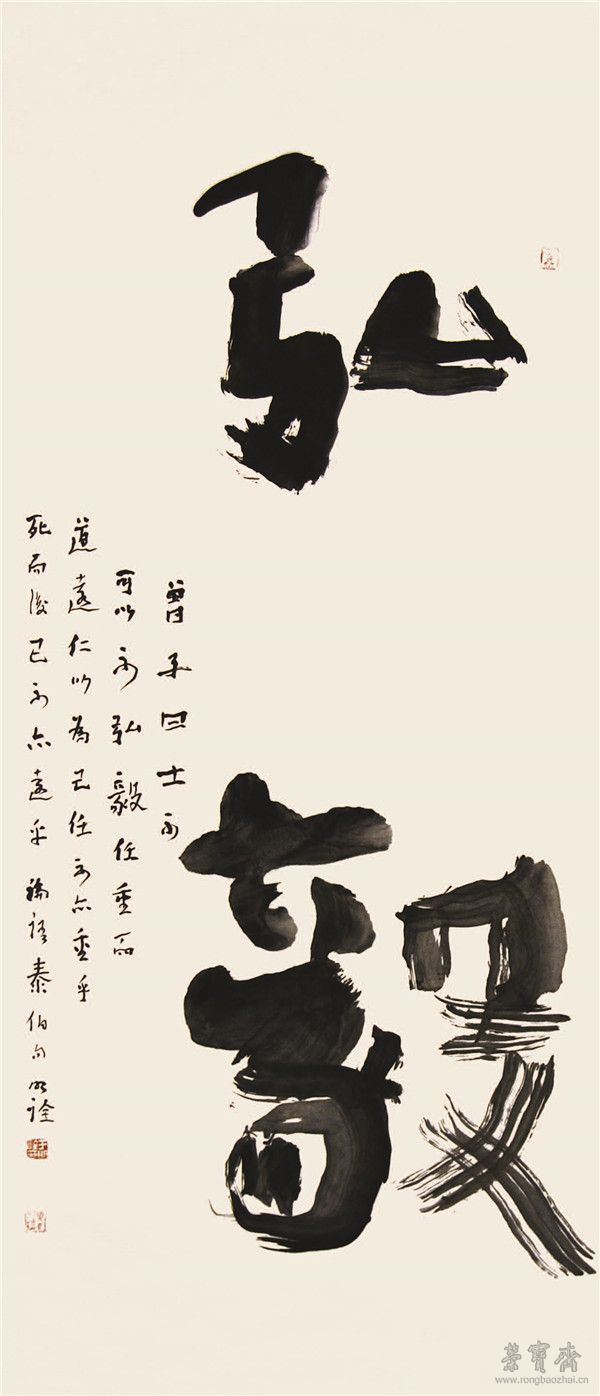 弘毅
曾子曰士不
可以不弘毅任重而
道遠仁以為己任不亦重乎
死而後已不亦遠乎 論語泰伯句 明詮
榮寶齋
www.rongbaozhai.cn